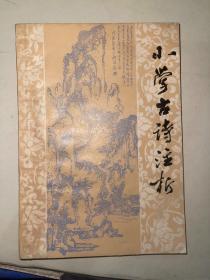 小学古诗注析